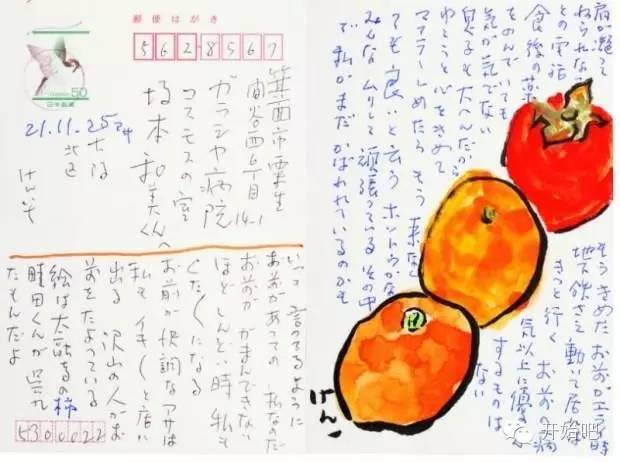 郵便はがき
562-8567
50
日本郵便
21.11.25アサ
大阪
北区
けんいち
箕面市粟生
間谷西6丁目
14-1
ガラシヤ病院
コスモスの室
坂本和美くんへ
いつも言ってるように
お前があっての私なのだ
お前ががまんできない
ほどしんどい時私も
くたくたになる
お前が快調なアサは
私もイキイキと店に
出る 沢山の人がお
前をたよっている
絵は太融寺の柿
時田くんが呉れ
たもんだよ
5300022
肩が凝って
ねられない
との電話
食後の薬
をのんでいても
気が気でない
大へんだから
と心をきめて
しめたらもう来なく
ても良いと云うホントウかな
みんなムリして頑張っているその中
で私がまだかばわれているのかも
もうきめたお前がエライ時
地下鉄さえ動いて居れば
きっと行く お前の病
気以上に優先
するものは
ない
けん
开始吧